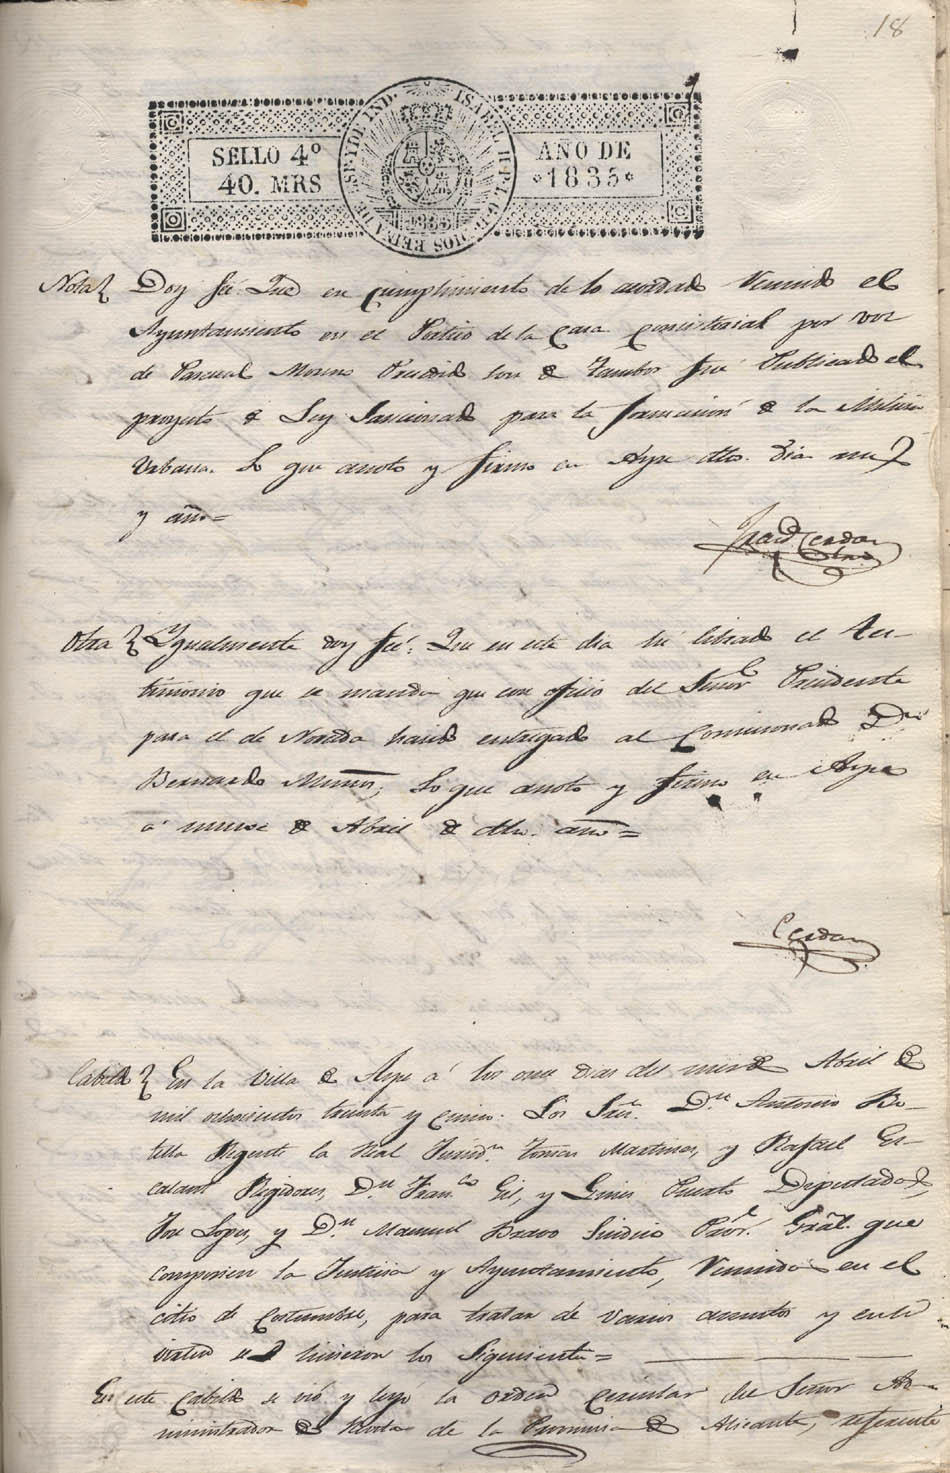 18
SELLO 4º
40. MRS
AÑO DE
*1835*
ISABEL II P. L. G. D DIOS REINA DE ESP. Y DE IND.
1835
Nota } Doy fé: Que en cumplimiento de lo acordado Reunido el
Ayuntamiento en el Patio de la Casa Consistorial por voz
de Pascual Moreno son de Tambor fué Publicado el
proyecto de Ley Sancionado para la formacion de la Milicia
Urbana. Lo que anoto y firmo en Aspe dho. dia mes
y año=
Cerdan
Otra } Ygualmente doy fé: Que en este dia hé librado el Tes-
timonio que se manda que con oficio del Señor Presidente
para el de Novelda haviendo entregado al Comisionado Dn.
Bernardo Muños, Lo que anoto y firmo en Aspe
á nueve de Abril de dho. año=
Cerdan
Cabildo } En la Villa de Aspe á los once dias del mes de Abril de
mil ochocientos treinta y cinco: Los Sres. Dn. Antonio Bo-
tella Regente la Real Jurisdn. Tomas Martinez, y Rafael Es-
calant Regidores, Dn. Franco. Gil, y Gines Puerto Diputados,
José Lopez, y Dn. Manuel Bravo Sindico Pror. Gral. que
componen la Justicia y Ayuntamiento, Reunidos en el
citio de Costumbre, para tratar de varios asuntos y en su
virtud se hicieron los Siguientes=
En este Cabildo se vió y leyó la orden circular del Señor Ad-
ministrador de Rentas de la Provincia de Alicante, referente